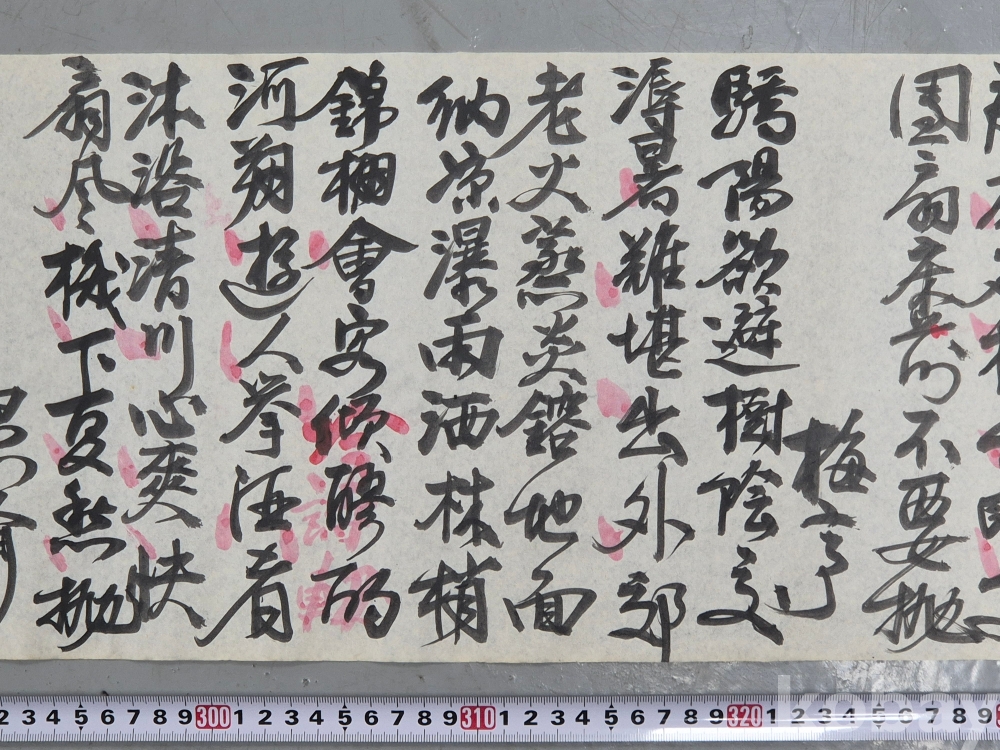 団扇来前不要抛
梅亭
驕陽欲避樹陰交
溽暑難堪出外郊
老火蒸炎鎔地面
納涼瀑雨洒林梢
錦棚會客傾醪
河朔遊人挙酒肴
沐浴清川心爽快
扇風機下夏愁抛
2 3 4 5 6 7 8 9 300 1 2 3 4 5 6 7 8 9 310 1 2 3 4 5 6 7 8 9 320 1 2 3 4 5 6 7 8 9